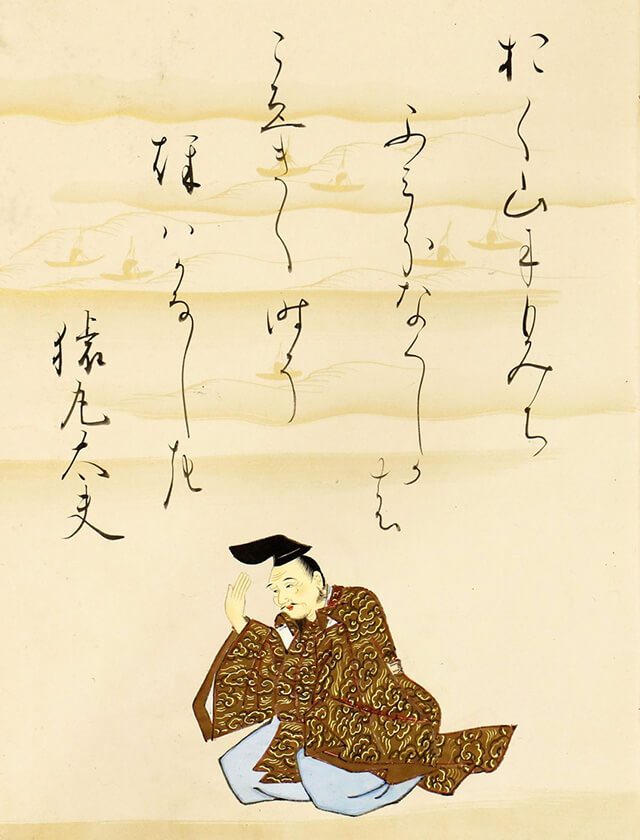 おく山にもみち
ふみわけなくしかの
こゑきく時そ
秋ハかなしき
猿丸太夫